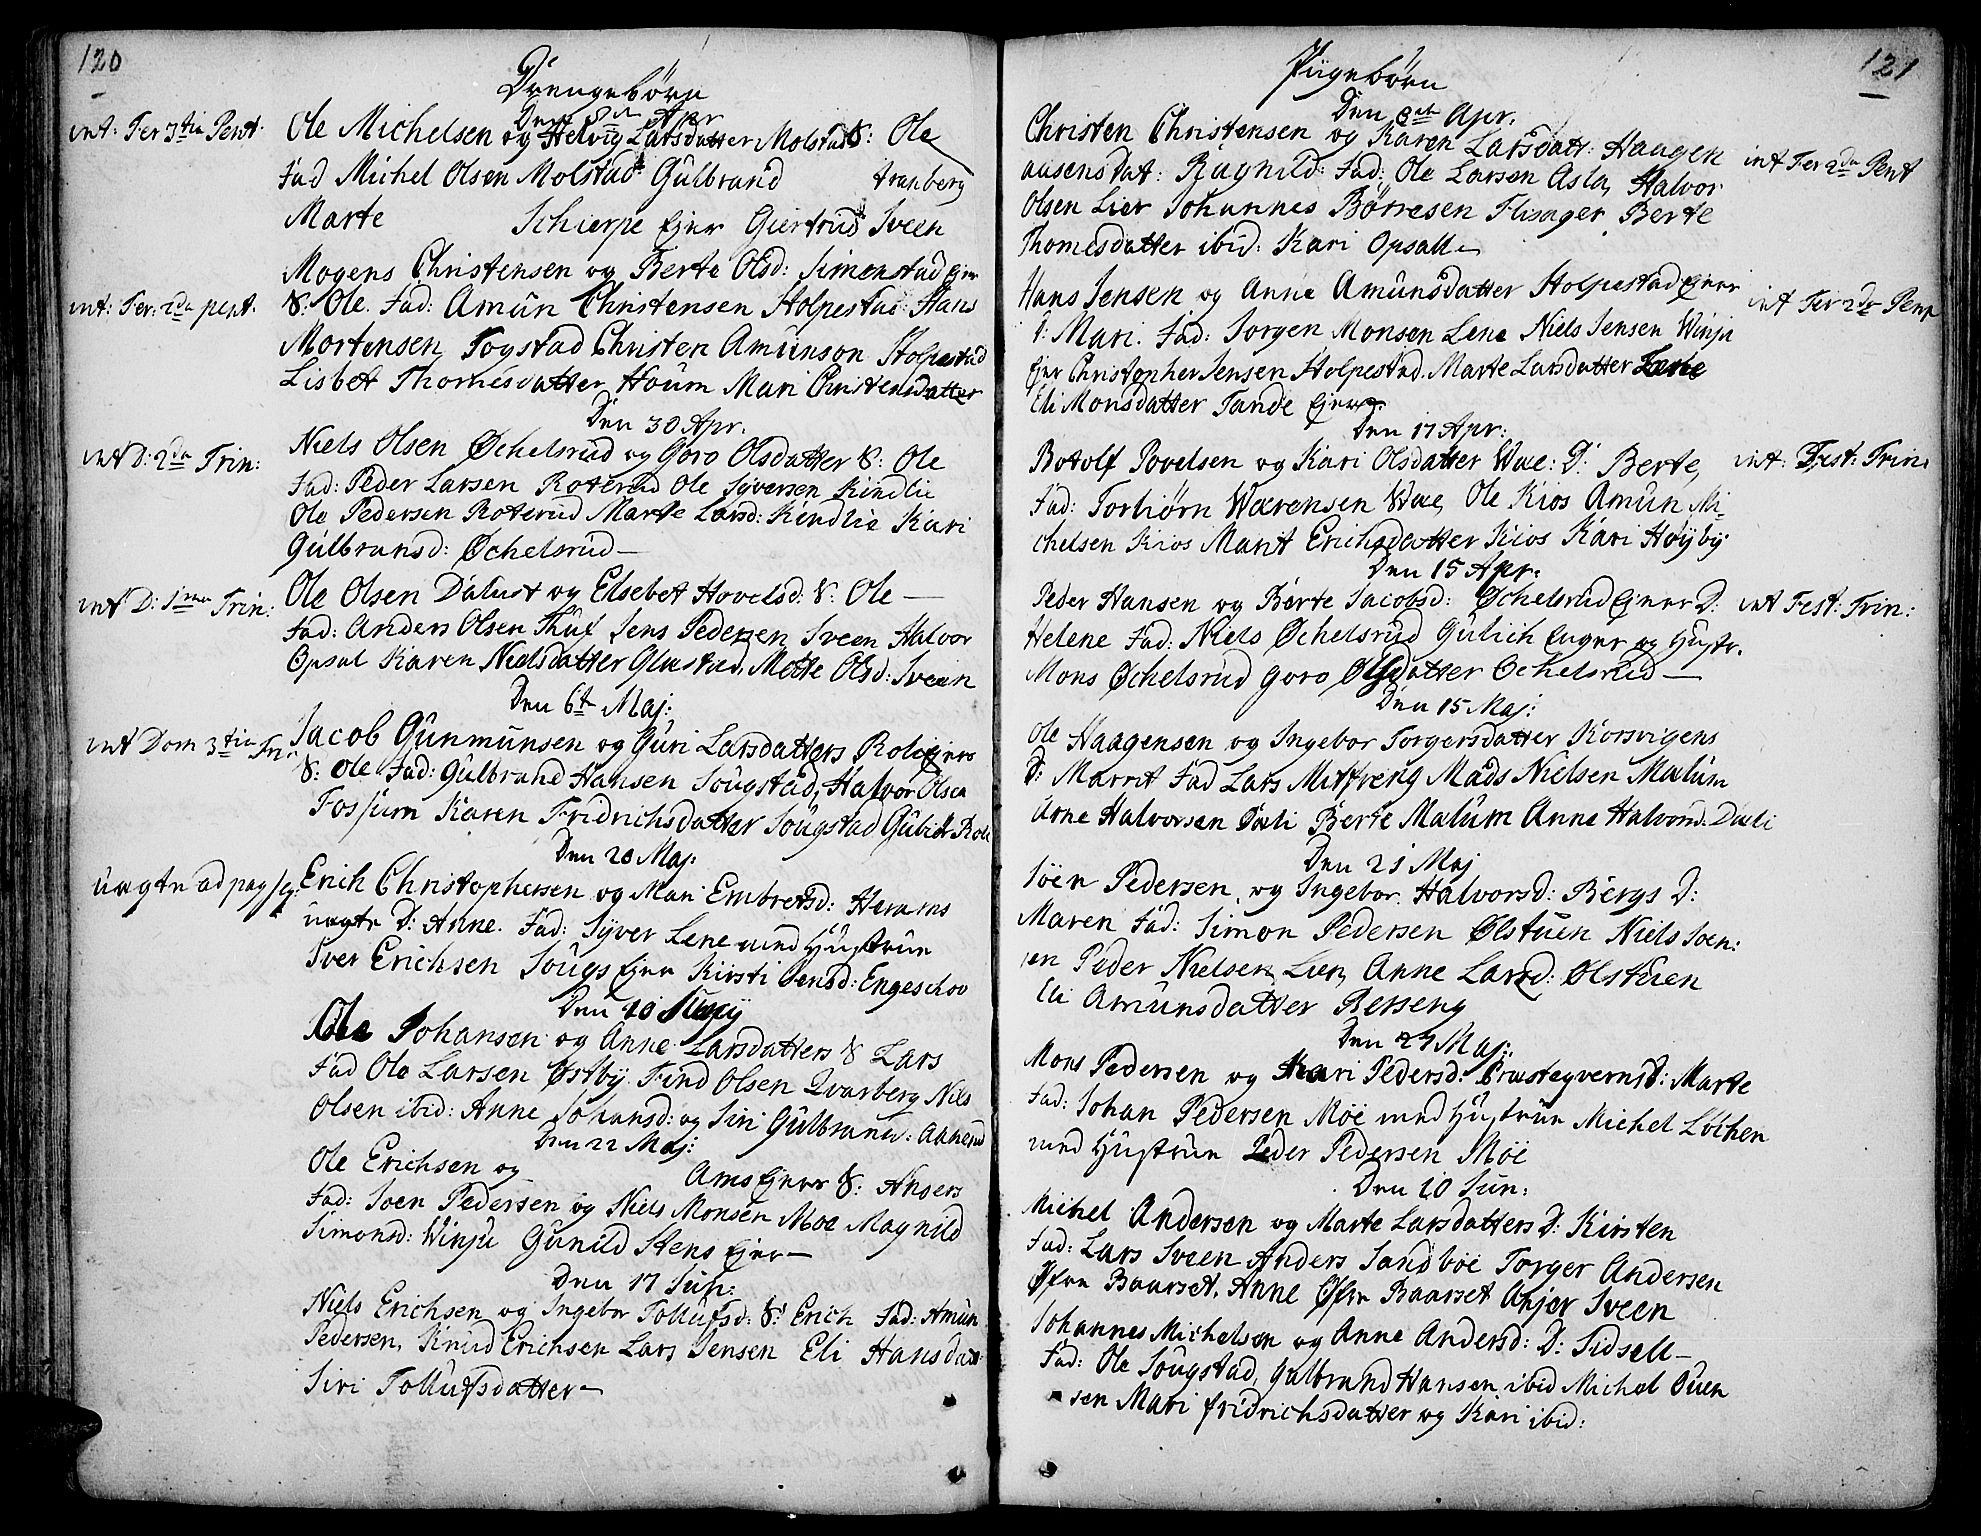 120
Drengebørn
Den 8de Apr
int: Fer 3tia Pent:
Ole Michelsen og Helvig Larsdatter Molstad S: Ole
Fad Michel Olsen Molstad Gulbrand Tranberg
Marte Schierpe Ejer Giertrud Sveen
Mogens Christensen og Berte Olsd: Simenstad Ejer
int: Fer: 2da pent.
S: Ole. Fad: Amun Christensen Holpestad Hans
Mortensen Togstad Christen Amunson Holpestad
Lisbet Thomesdatter Houm Mari Christensdatter
Den 30 Apr.
int D: 2da Trin:
Niels Olsen Øchelsrud og Goro Olsdatter S: Ole
Fad: Peder Larsen Roterud Ole Syversen Kindlie
Ole Pedersen Roterud Marte Larsd: Kindlie Kari
Gulbransd: Øchelsrud—
int D: 1ma Trin:
Ole Olsen Dalust og Elsebet Hovelsd: S: Ole —
Fad: Anders Olsen Thuf Jens Pedersen Sveen Halvor
Opsal Karen Nielsdatter Glæstad, Mette Olsd: Sveen
Den 6te Maj:
int Dom 3tia Tri
Jacob Gunmunsen og Guri Larsdatters Rolie Ejers
S: Ole Fad: Gulbrand Hansen Sougstad, Halvor Olsen
Fossum Karen Fridrichsdatter Sougstad Gulich Role
Den 20 Maj:
uægte ad pag seq:
Erich Christophersen og Mari Embretsd: Herams
uægte D: Anne. Fad: Syver Lene med Hustrue
Iver Erichsen Sougs Ejer Kirsti Jensd: Engeschov
Den 20 Maji
Ole Johansen og Anne Larsdatters S Lars
Fad Ole Larsen Østby Find Olsen Qvarberg Nils
Olsen ibid: Anne Johansd: og Siri Gulbransd: Aanerud
Den 22 Maj:
Ole Erichsen og Arns Ejer S: Anders
Fad: Soen Pedersen og Niels Monsen Moe Magnild
Simonsd: Winju Gunild Stens Ejer—
Den 17 Jun:
Niels Erichsen og Ingebor Tollufsd: S: Erich Fad: Amun
Pedersen, Knud Erichsen Lars Jensen Eli Hansdatt:
Siri Tollufsdatter—
121
Pigebørn
Den 8de Apr.
int Fer 2da Pent
Christen Christensen og Karen Larsdatt: Haagen
ausens Dat: Rugnild Fad: Ole Larsen Asla, Halvor
Olsen Lier Johannes Børresen Flisager Berte
Thomesdatter ibid: Kari Opsall—
int Fer 2da Pent
Hans Jensen og Anne Amunsdatter Holpestad Ejer
D: Mari. Fad: Jorgen Monsen Lene Niels Jensen Winju
Ejer Christopher Jensen Holpestad. Marte Larsdatter Lene
Eli Monsdatter Tande Ejer.
Den 17 Apr:
int: Fest: Trin:
Botolf Povelsen og Kari Olsdatter Wæe: D: Berte,
Fad: Torbiørn Wærensen Wæe, Ole Kios Amun Mi-
chelsen Kios Marit Erichsdatter Kios Kari Høyby
Den 15 Apr:
int Fest: Trin:
Peder Hansen og Berte Jacobsd: Øchelsrud Ejer D:
Helene Fad: Niels Øchelsrud Gulich Euger og Hustr.
Mons Øchelsrud Goro Olsdatter Øchelsrud—
Den 15 Maj:
Ole Haagensen og Ingebor Torgersdatter Korsvigens
D: Marrit Fad Lars Mittveng Mads Nielsen Malum
Arne Halvorsen Dæli Berte Malum Anne Halvorsd: Dæli
Den 21 Maj
Søen Pedersen, og Ingebor Halvorsd: Bergs D:
Maren Fad: Simon Pedersen Ølstuen Niels Soen:
sen Peder Nielsen Lien, Anne Larsd: Ølstuen
Eli Amunsdatter Berseng
Den 27 Maj:
Mons Pedersen og Kari Pedersd: Præstegvernsd: Marte
Fad: Johan Pedersen Moe med Hustrue Michel Løchen
med Hustrue Peder Pedersen Moe
Den 10 Jun:
Michel Andersen og Marte Larsdatters D: Kirsten
Fad: Lars Sveen Anders Sandboe Torger Andersen
Øfre Baarset, Anne Øfre Baarset Anjer Sveen
Johannes Michelsen og Anne Andersd: D: Sidsell—
Fad: Ole Sougstad, Gulbrand Hansen ibid Michel Ouen
sen Mari fridrichsdatter og Kari ibid: